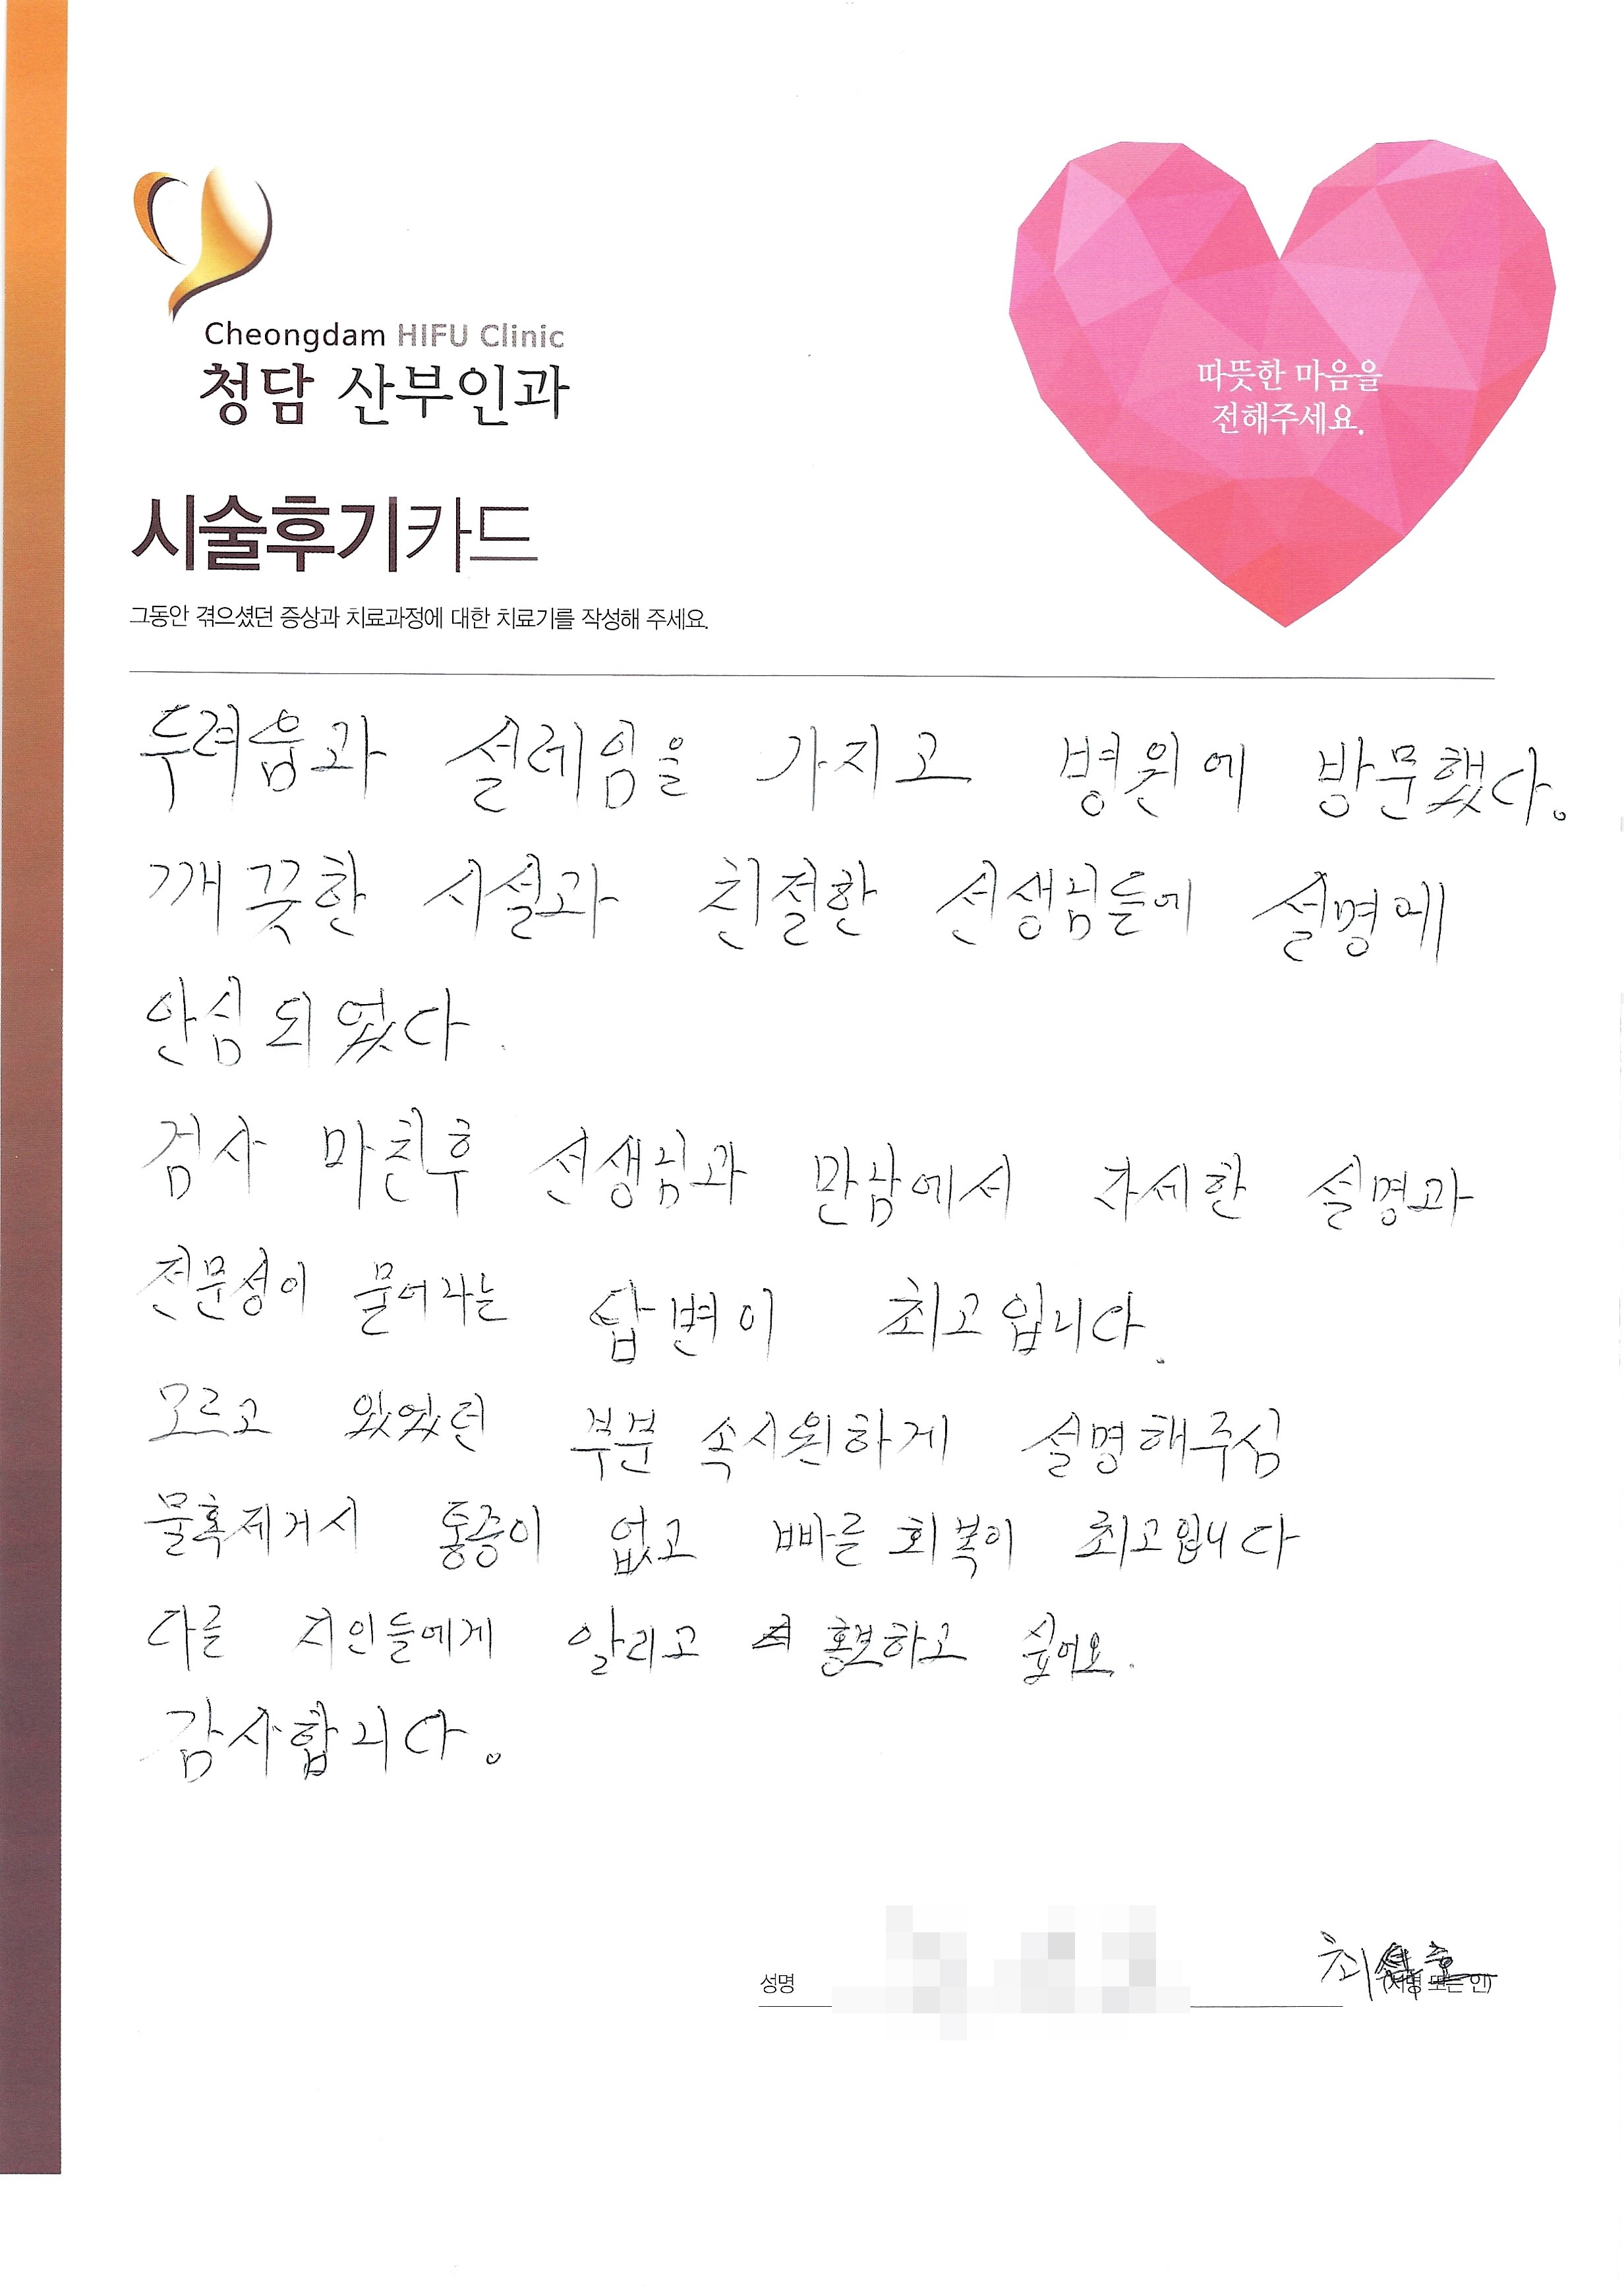 Cheongdam HIFU Clinic
청담 산부인과
따뜻한 마음을
전해주세요.
시술후기카드
그동안 겪으셨던 증상과 치료과정에 대한 치료기를 작성해 주세요.
두려움과 설레임을 가지고 병원에 방문했다.
깨끗한 시설과 친절한 선생님들에 설명에
안심되였다.
검사 마친후 선생님과 만남에서 자세한 설명과
전문성이 물어나는 답변이 최고입니다.
모르고 있었던 부분 속시원하게 설명해주심
물혹제거시 통증이 없고 빠른 회복이 최고입니다
다른 지인들에게 알리고 홍보하고 싶어요.
감사합니다.
성명 최 (서명 또는 인)